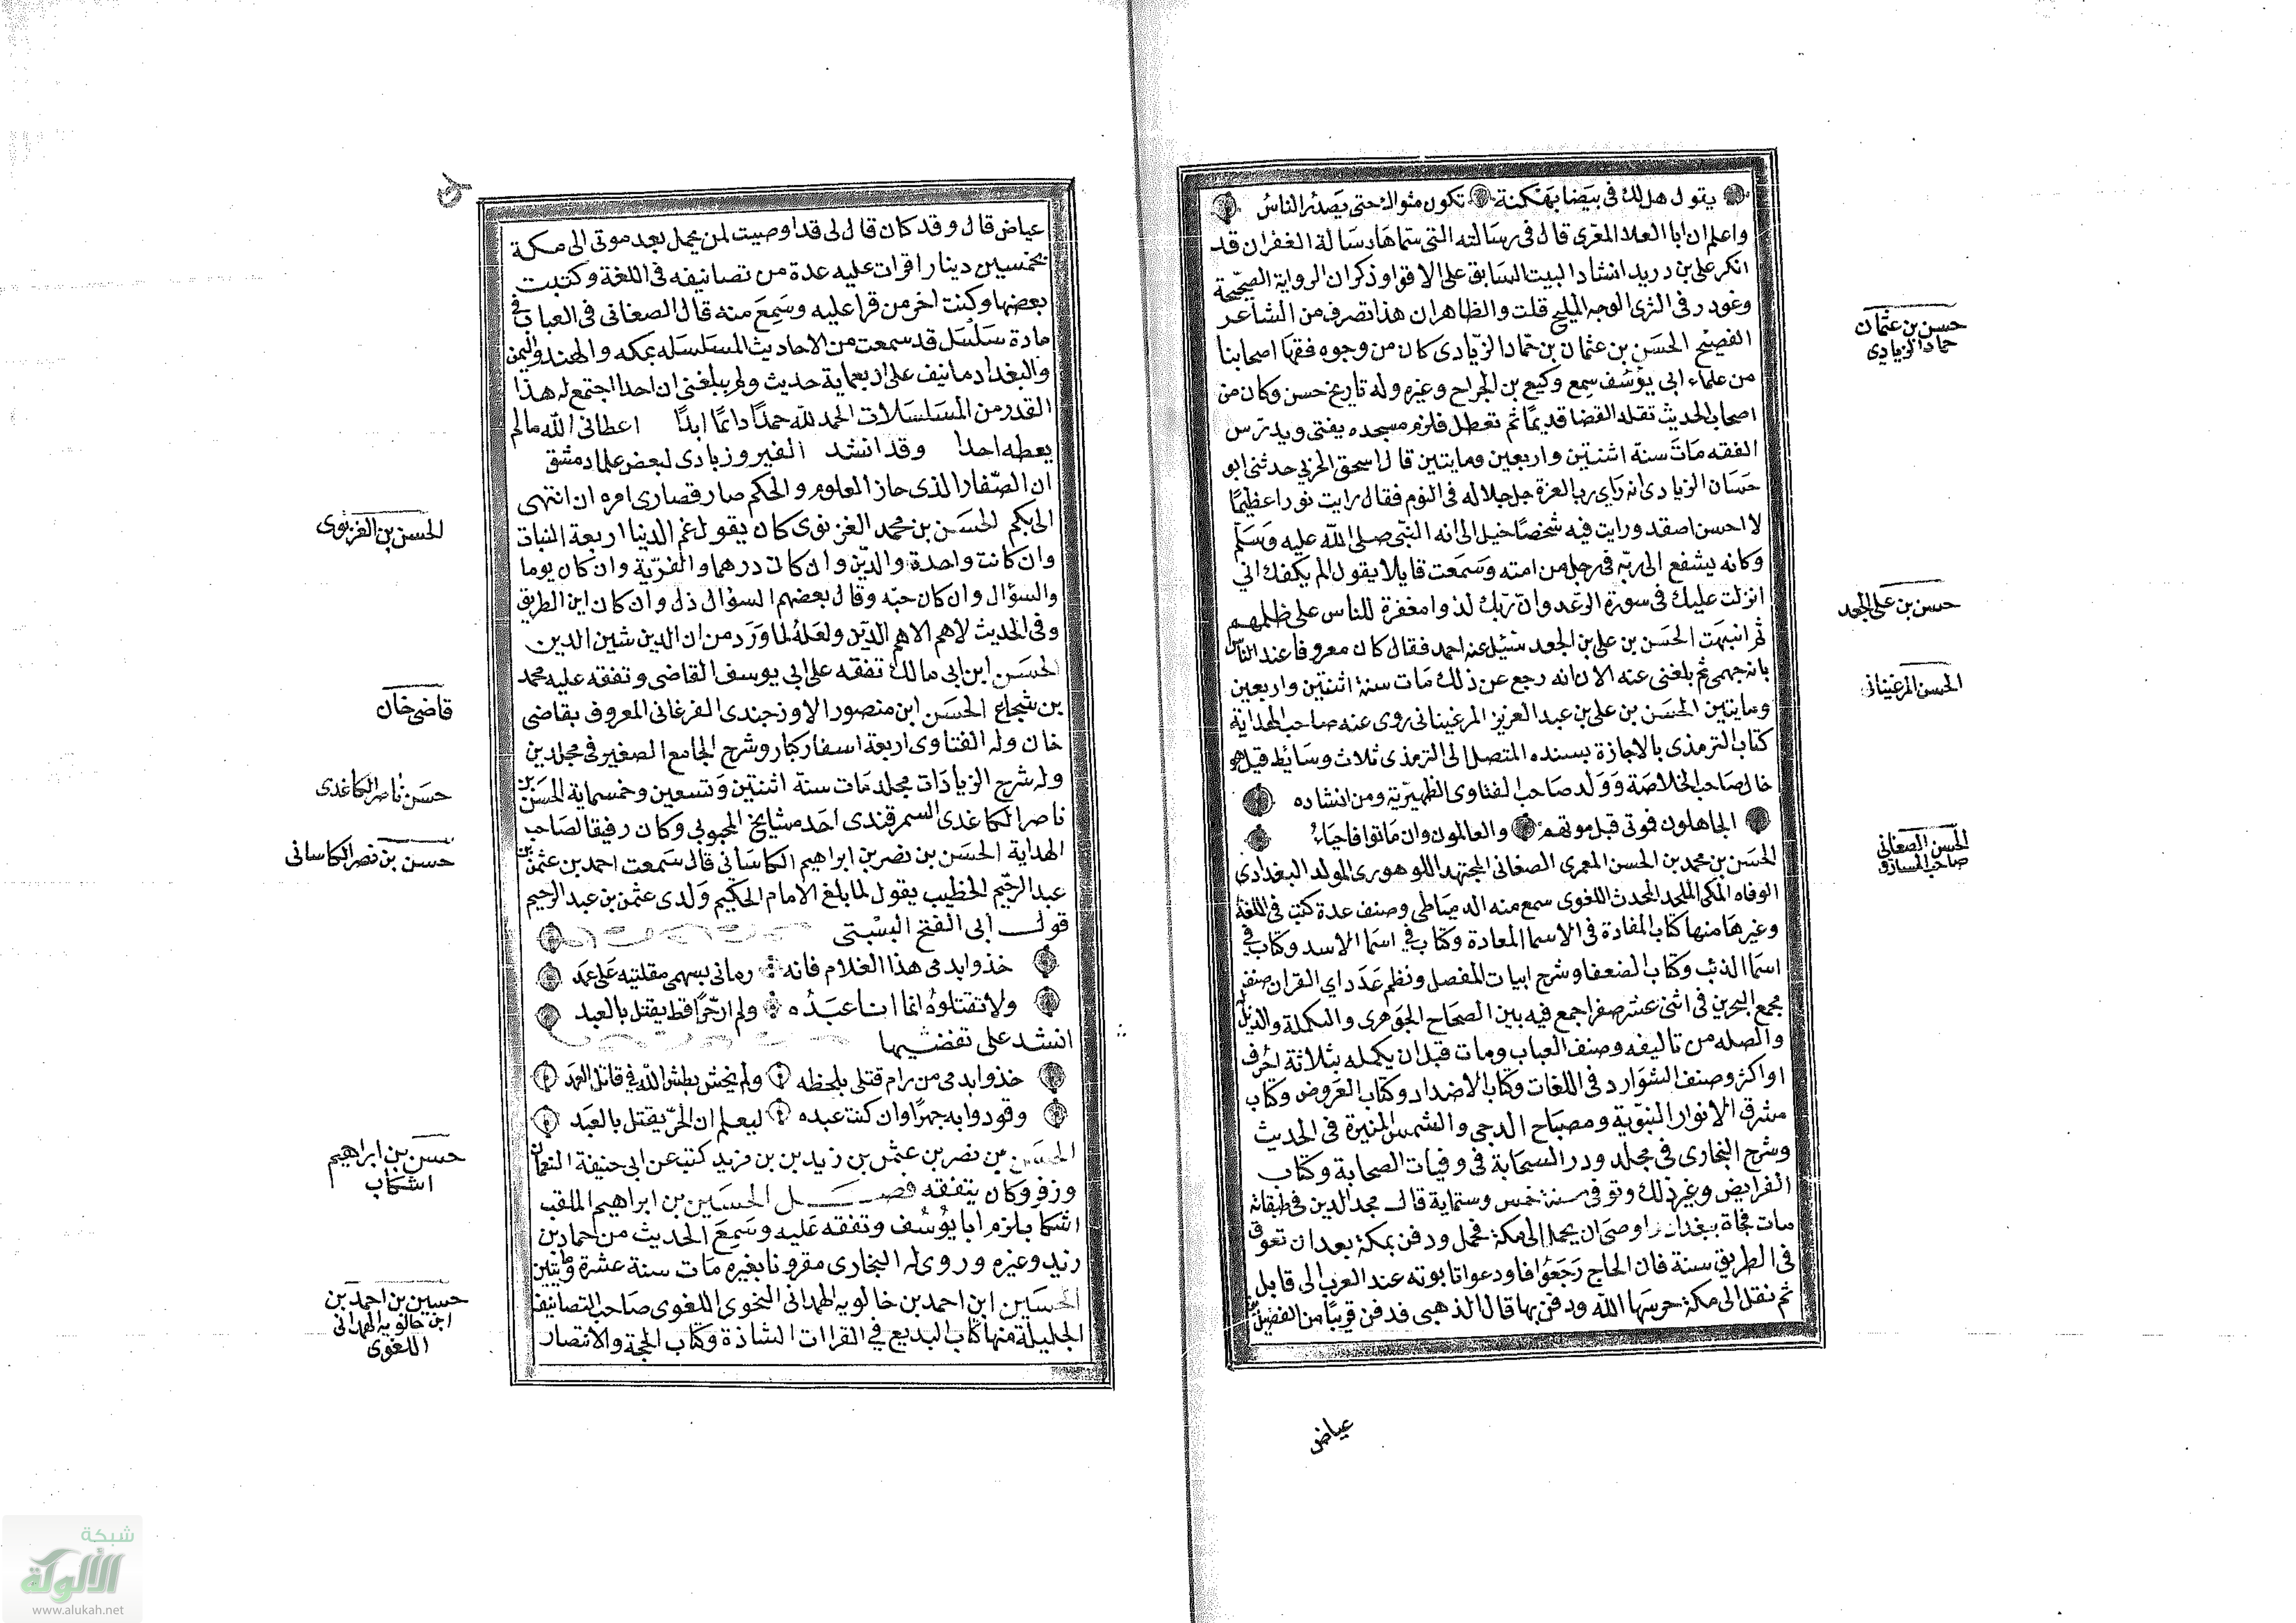 يقول هل لك في بيضا بهكنة تكون مثواك حتى يصدر الناس
واعلم ان ابا العلا المعري قال في رسالته التي سماها رسالة الغفران قد
انكر علي بن دريد انشاد البيت السابق على الاقوا وذكر ان الرواية الصحيحة
وغودر في الثرى الوجه المليح قلت والظاهر ان هذا تصرف من الشاعر
الفصيح الحسن بن عثمان بن حماد الزيادي كان من وجوه فقها اصحابنا
من علماء ابي يوسف سمع وكيع بن الجراح وغيره وله تاريخ حسن وكان من
اصحاب الحديث تقلد القضا قديما ثم تعطل فلزم مسجده يفتي ويدرس
الفقه مات سنة اثنتين واربعين ومايتين قال اسحق الحربي حدثني ابو
حسان الزيادي انه راي رب العزة جل جلاله في النوم فقال رايت نورا عظيما
لا احسن اصفه ورايت فيه شخصا خيل الي انه النبي صلى الله عليه وسلم
وكانه يشفع الى ربه في رجل من امته وسمعت قايلا يقول الم يكفك اني
انزلت عليك في سورة الرعد وان ربك لذو مغفرة للناس على ظلمهم
ثم انتبهت الحسن بن علي بن الجعد سئيل عنه احمد فقال كان معروفا عند الناس
بانه جهمي ثم بلغني عنه الان انه رجع عن ذلك مات سنة اثنتين واربعين
ومايتين الحسن بن علي بن عبد العزيز المرغيناني روى عنه صاحب الهداية
كتاب الترمذي بالاجازة بسنده المتصل الى الترمذي ثلاث وسايط قيل هو
خال صاحب الخلاصة وولد صاحب الفتاوى الظهيرية ومن انشاده
الجاهلون فوتى قبل موتهم والعالمون وان ماتوا فاحياء
الحسن بن محمد بن الحسن العمري الصغاني المجتهد اللوهوري المولد البغدادي
الوفاه المكي الملحد المحدث اللغوي سمع منه الدمياطي وصنف عدة كتب في اللغة
وغيرها منها كتاب المفادة في الاسما المعادة وكتاب في اسما الاسد وكتاب في
اسما الذئب وكتاب الضعفا وشرح ابيات المفصل ونظم عدد اي القران صنف
مجمع البحرين في اثنى عشر صفرا جمع فيه بين الصحاح الجوهري والتكملة والذيل
والصله من تاليفه وصنف العباب ومات قبل ان يكمله بثلاثة احرف
او اكثر وصنف الشوارد في اللغات وكتاب الاضداد وكتاب العروض وكتاب
مشرق الانوار النبوية ومصباح الدجي والشمس المنيرة في الحديث
وشرح البخاري في مجلد ودر السحابة في وفيات الصحابة وكتاب
الفرايض وغير ذلك وتوفي سنة خمس وستماية قال مجد الدين في طبقاته
مات فجاة ببغداد اوصى ان يحمل الى مكة فحمل ودفن بمكة بعد ان تعوق
في الطريق سنة فان الحاج رجعوا فاودعوا تابوته عند العرب الى قابل
ثم نقل الى مكة حرسها الله ودفن بها قال الذهبي فدفن قريبا من الفضيل بن
عياض
حسن بن عثمان
حماد الزيادي
حسن بن علي الجعد
الحسن المرغيناني
الحسن الصغاني
صاحب المشارق
عياض قال وقد كان قال لي قد اوصيت لمن يحمل بعد موتى الى مكة
بخمسين دينارا قرات عليه عدة من تصانيفه في اللغة وكتبت
بعضها وكنت اخر من قرا عليه وسمع منه قال الصغاني في العباب في
مادة سلسل قد سمعت من الاحاديث المسلسله بمكه والهند واليمن
والبغداد ما نيف على اربعماية حديث ولم يبلغني ان احدا اجتمع له هذا
القدر من المسلسلات الحمد لله حمدا دائما ابدا اعطاني الله مالم
يعطه احدا وقد انشد الفيروزبادي لبعض علما دمشق
ان الصغار الذي حاز العلوم والحكم صار قصارى امره ان انتهى
الى بكم الحسن بن محمد الغزنوي كان يقول غم الدنيا اربعة البنات
وان كانت واحدة والدين وان كان درهما والغربة وان كان يوما
والسؤال وان كان حبه وقال بعضهم السؤال ذل وان كان اين الطريق
وفي الحديث لاهم الاهم الدين ولعله لما ورد من ان الدين شين الدين
الحسن ابن ابي مالك تفقه على ابي يوسف القاضي وتفقه عليه محمد
بن شجاع الحسن ابن منصور الاوزجندي الفرغاني المعروف بقاضي
خان وله الفتاوى اربعة اسفار كبار وشرح الجامع الصغير في مجلدين
وله شرح الزيادات مجلد مات سنة اثنتين وتسعين وخمسماية الحسن بن
ناصر الكاغدي السمرقندي احد مشايخ المحبوبي وكان رفيقا لصاحب
الهداية الحسن بن نصر بن ابراهيم الكاساني قال سمعت احمد بن عثمن بن
عبد الرحيم الخطيب يقول لما بلغ الامام الحكيم ولدي عثمن بن عبد الرحيم
قول ابي الفتح البستي
خذوا بدمي هذا الغلام فانه رماني بسهمي مقلتيه على عمد
ولا تقتلوه انما انا عبده ولم ار حرا قط يقتل بالعبد
انشد على تفضيها
خذوا بدمي من رام قتلي بلحظه ولم يخش بطش الله في قاتل العمد
وقودوا به جهرا وان كنت عبده ليعلم ان الحر يقتل بالعبد
الحسن بن نصر بن عثمن بن زيد بن مزيد كتب عن ابي حنيفة النعمان
وزفر وكان يتفقه فصل الحسين بن ابراهيم الملقب
اشكاب لزم ابا يوسف وتفقه عليه وسمع الحديث من حماد بن
زيد وغيره وروى له البخاري مقرونا بغيره مات سنة عشرة ومايتين
الحسين ابن احمد بن خالويه الهمداني النحوي اللغوي صاحب التصانيف
الجليلة منها كتاب البديع في القراات الشاذة وكتاب الحجة والانتصار
الحسن بن الغزنوي
قاضي خان
حسن ناصر الكاغدي
حسن بن نصر الكاساني
حسن بن ابراهيم
اشكاب
حسين بن احمد بن
ابن خالويه الهمداني
اللغوي
شبكة
الألوكة
www.alukah.net